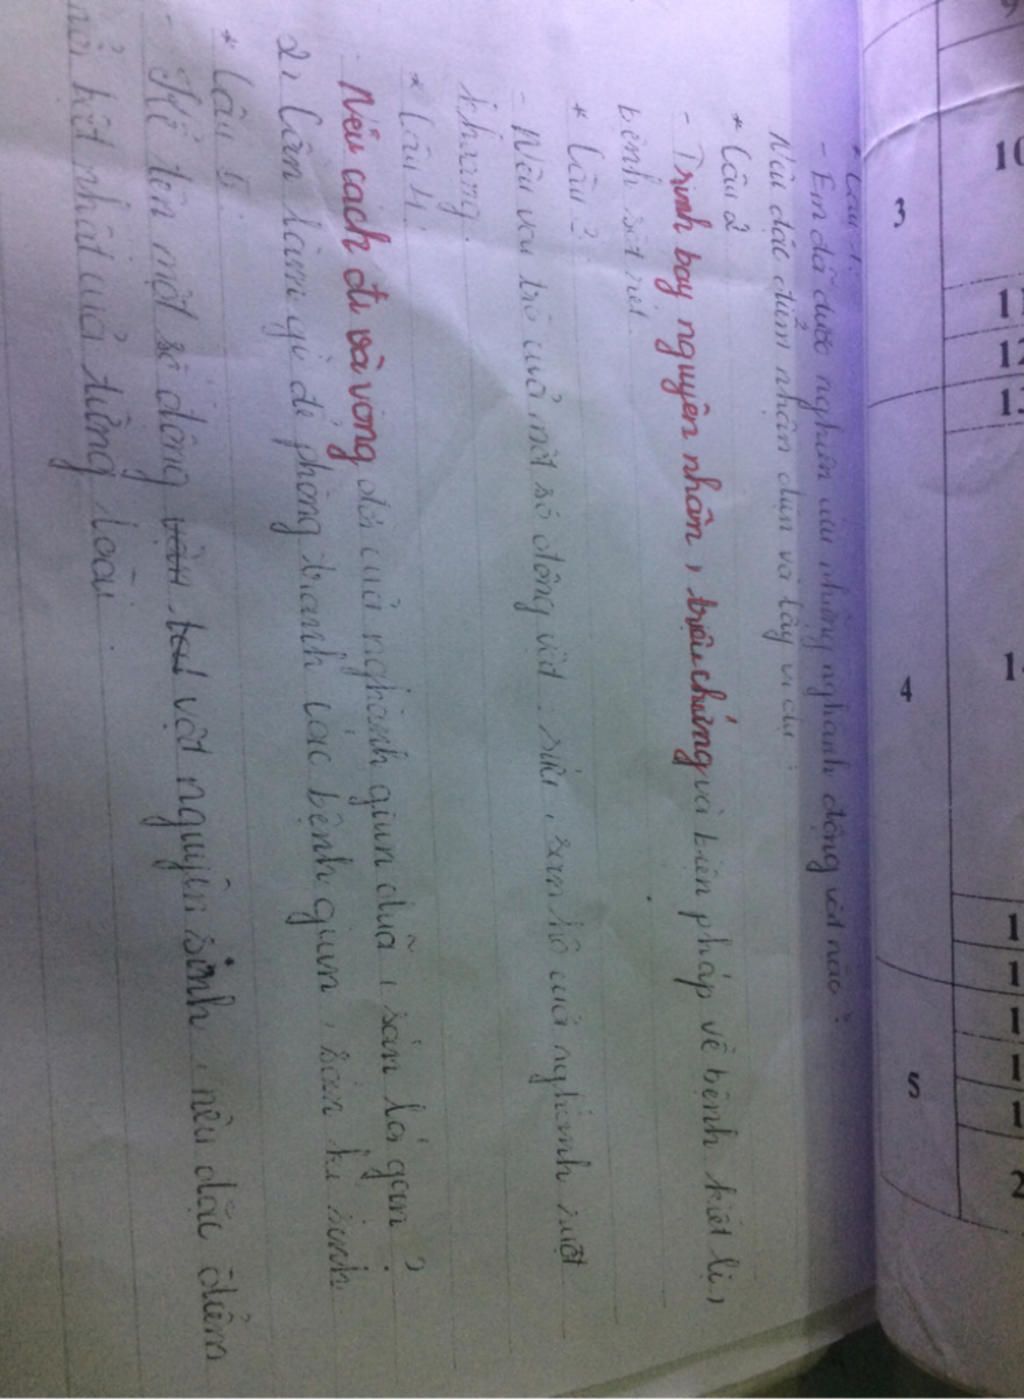 * Câu 1:
- Em đã được nghiên cứu những nghành động vật nào?
Nêu đặc điểm nhận dạn và lấy ví dụ?
* Câu 2
- Trình bay nguyên nhân, triệu chứng và biện pháp về bệnh kiết lị,
bệnh sốt rét.
* Câu 3
- Nêu vai trò cuả một số động vật: sứa, san hô cuả nghành ruột
khoang.
* Câu 4.
Nêu cách đi và vòng đời cuả nghành giun đũa, sán lá gan?
2, Cần làm gì để phòng tránh các bệnh giun, sán kí sinh
* Câu 5
- Kể tên một số động vật nguyên sinh, nêu đặc điểm
nổi bật nhất cuả từng loài.
3
4
5
10
11
12